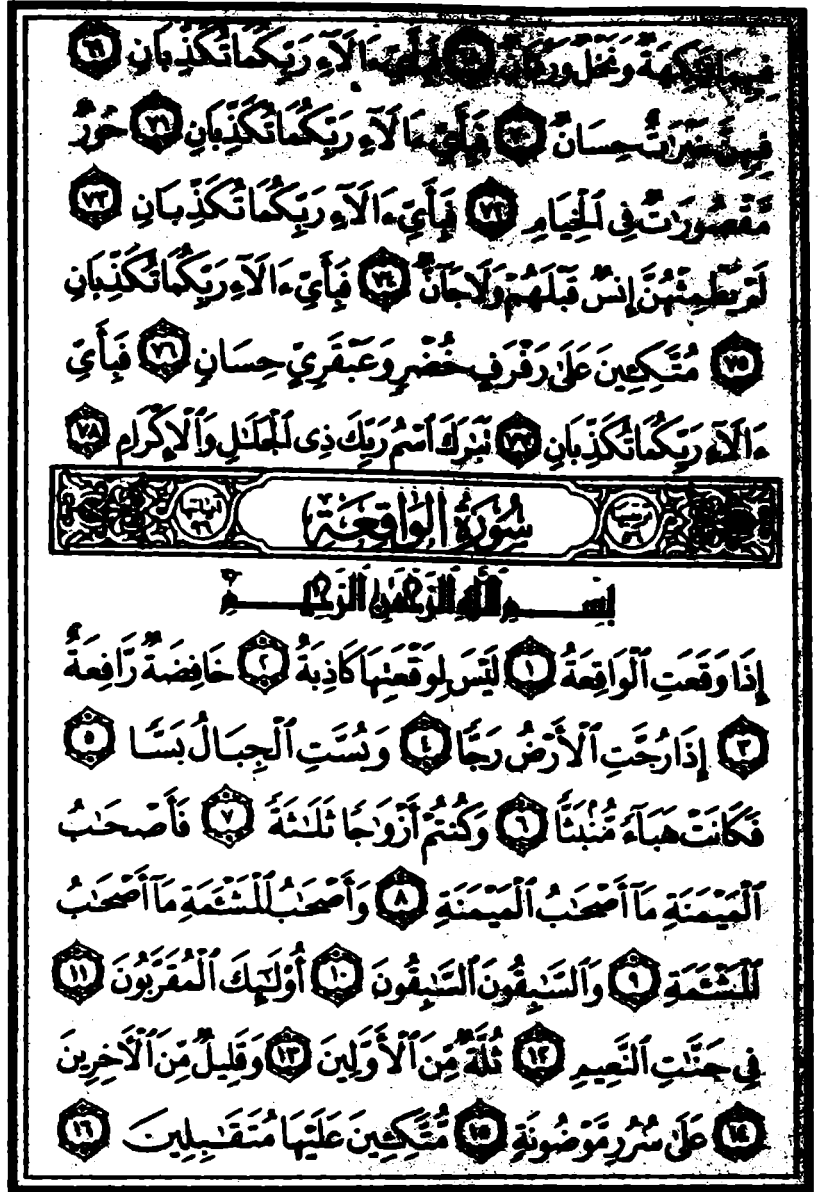 فِيهِمَا فَٰكِهَةٌ وَنَخْلٌ وَرُمَّانٌ ٦٨ فَبِأَيِّ ءَالَآءِ رَبِّكُمَا تُكَذِّبَانِ ٦٩
فِيهِنَّ خَيْرَٰتٌ حِسَانٌ ٧٠ فَبِأَيِّ ءَالَآءِ رَبِّكُمَا تُكَذِّبَانِ ٧١ حُورٌ
مَّقْصُورَٰتٌ فِى ٱلْخِيَامِ ٧٢ فَبِأَيِّ ءَالَآءِ رَبِّكُمَا تُكَذِّبَانِ ٧٣
لَمْ يَطْمِثْهُنَّ إِنسٌ قَبْلَهُمْ وَلَا جَآنٌّ ٧٤ فَبِأَيِّ ءَالَآءِ رَبِّكُمَا تُكَذِّبَانِ
٧٥ مُتَّكِـِٔينَ عَلَىٰ رَفْرَفٍ خُضْرٍ وَعَبْقَرِيٍّ حِسَانٍ ٧٦ فَبِأَيِّ
ءَالَآءِ رَبِّكُمَا تُكَذِّبَانِ ٧٧ تَبَٰرَكَ ٱسْمُ رَبِّكَ ذِى ٱلْجَلَٰلِ وَٱلْإِكْرَامِ ٧٨
ترتيبها ٥٦ سُورَةُ الوَاقِعَةِ آياتها ٩٦
بِسْمِ ٱللَّهِ ٱلرَّحْمَٰنِ ٱلرَّحِيمِ
إِذَا وَقَعَتِ ٱلْوَاقِعَةُ ١ لَيْسَ لِوَقْعَتِهَا كَاذِبَةٌ ٢ خَافِضَةٌ رَّافِعَةٌ
٣ إِذَا رُجَّتِ ٱلْأَرْضُ رَجًّا ٤ وَبُسَّتِ ٱلْجِبَالُ بَسًّا ٥
فَكَانَتْ هَبَآءً مُّنۢبَثًّا ٦ وَكُنتُمْ أَزْوَٰجًا ثَلَٰثَةً ٧ فَأَصْحَٰبُ
ٱلْمَيْمَنَةِ مَآ أَصْحَٰبُ ٱلْمَيْمَنَةِ ٨ وَأَصْحَٰبُ ٱلْمَشْـَٔمَةِ مَآ أَصْحَٰبُ
ٱلْمَشْـَٔمَةِ ٩ وَٱلسَّٰبِقُونَ ٱلسَّٰبِقُونَ ١٠ أُو۟لَٰٓئِكَ ٱلْمُقَرَّبُونَ ١١
فِى جَنَّٰتِ ٱلنَّعِيمِ ١٢ ثُلَّةٌ مِّنَ ٱلْأَوَّلِينَ ١٣ وَقَلِيلٌ مِّنَ ٱلْءَاخِرِينَ
١٤ عَلَىٰ سُرُرٍ مَّوْضُونَةٍ ١٥ مُّتَّكِـِٔينَ عَلَيْهَا مُتَقَٰبِلِينَ ١٦